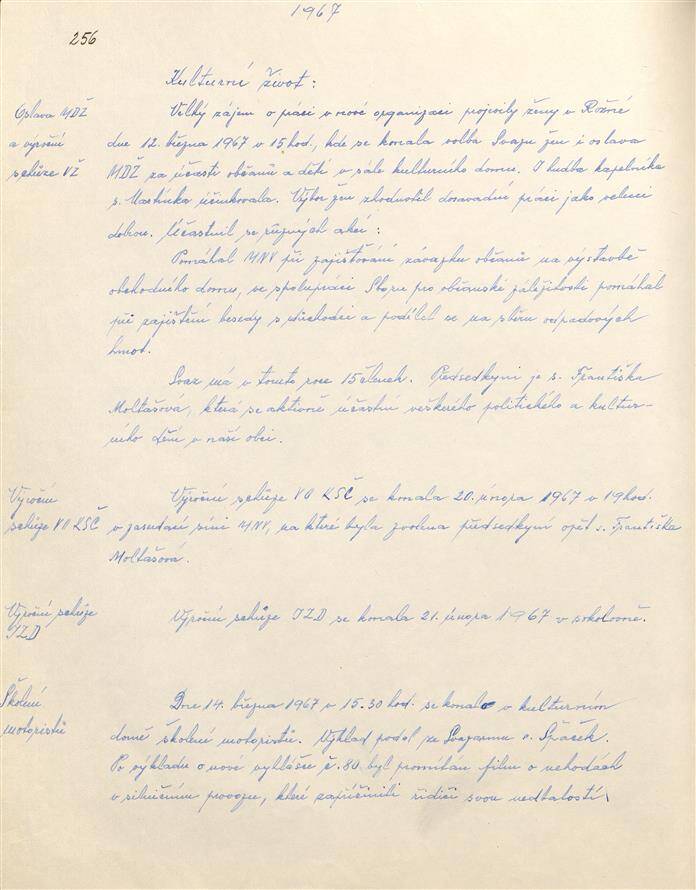 1967
256
Kulturní život:
Oslava MDŽ
a výroční
schůze VŽ
Velký zájem o práci v nové organizaci projevily ženy v Rožné
dne 12. března 1967 v 15 hod., kde se konala volba Svazu žen i oslava
MDŽ za účasti občanů a dětí v sále kulturního domu. I hudba kapelníka
s. Martínka účinkovala. Výbor žen zhodnotil dosavadní práci jako velmi
dobrou. Účastnil se různých akcí:
Pomáhal MNV při zajišťování závazků občanů na výstavbě
obchodního domu, ve spolupráci Sboru pro občanské záležitosti pomáhal
při zajištění besedy s důchodci a podílel se na sběru odpadových
hmot.
Svaz má v tomto roce 15 členek. Předsedkyní je s. Františka
Moltašová, která se aktivně účastní veškerého politického a kultur-
ního dění v naší obci.
Výroční
schůze VO KSČ
Výroční schůze VO KSČ se konala 20. února 1967 v 19 hod.
v zasedací síni MNV, na které byla zvolena předsedkyní opět s. Františka
Moltašová.
Výroční schůze
JZD
Výroční schůze JZD se konala 21. února 1967 v sokolovně.
Školení
motoristů
Dne 14. března 1967 v 15.30 hod. se konalo v kulturním
domě školení motoristů. Výklad podal ze Svazarmu s. Špaček.
Po výkladu o nové vyhlášce č. 80 byl promítán film o nehodách
v silničním provozu, které zapříčinili řidiči svou nedbalostí.